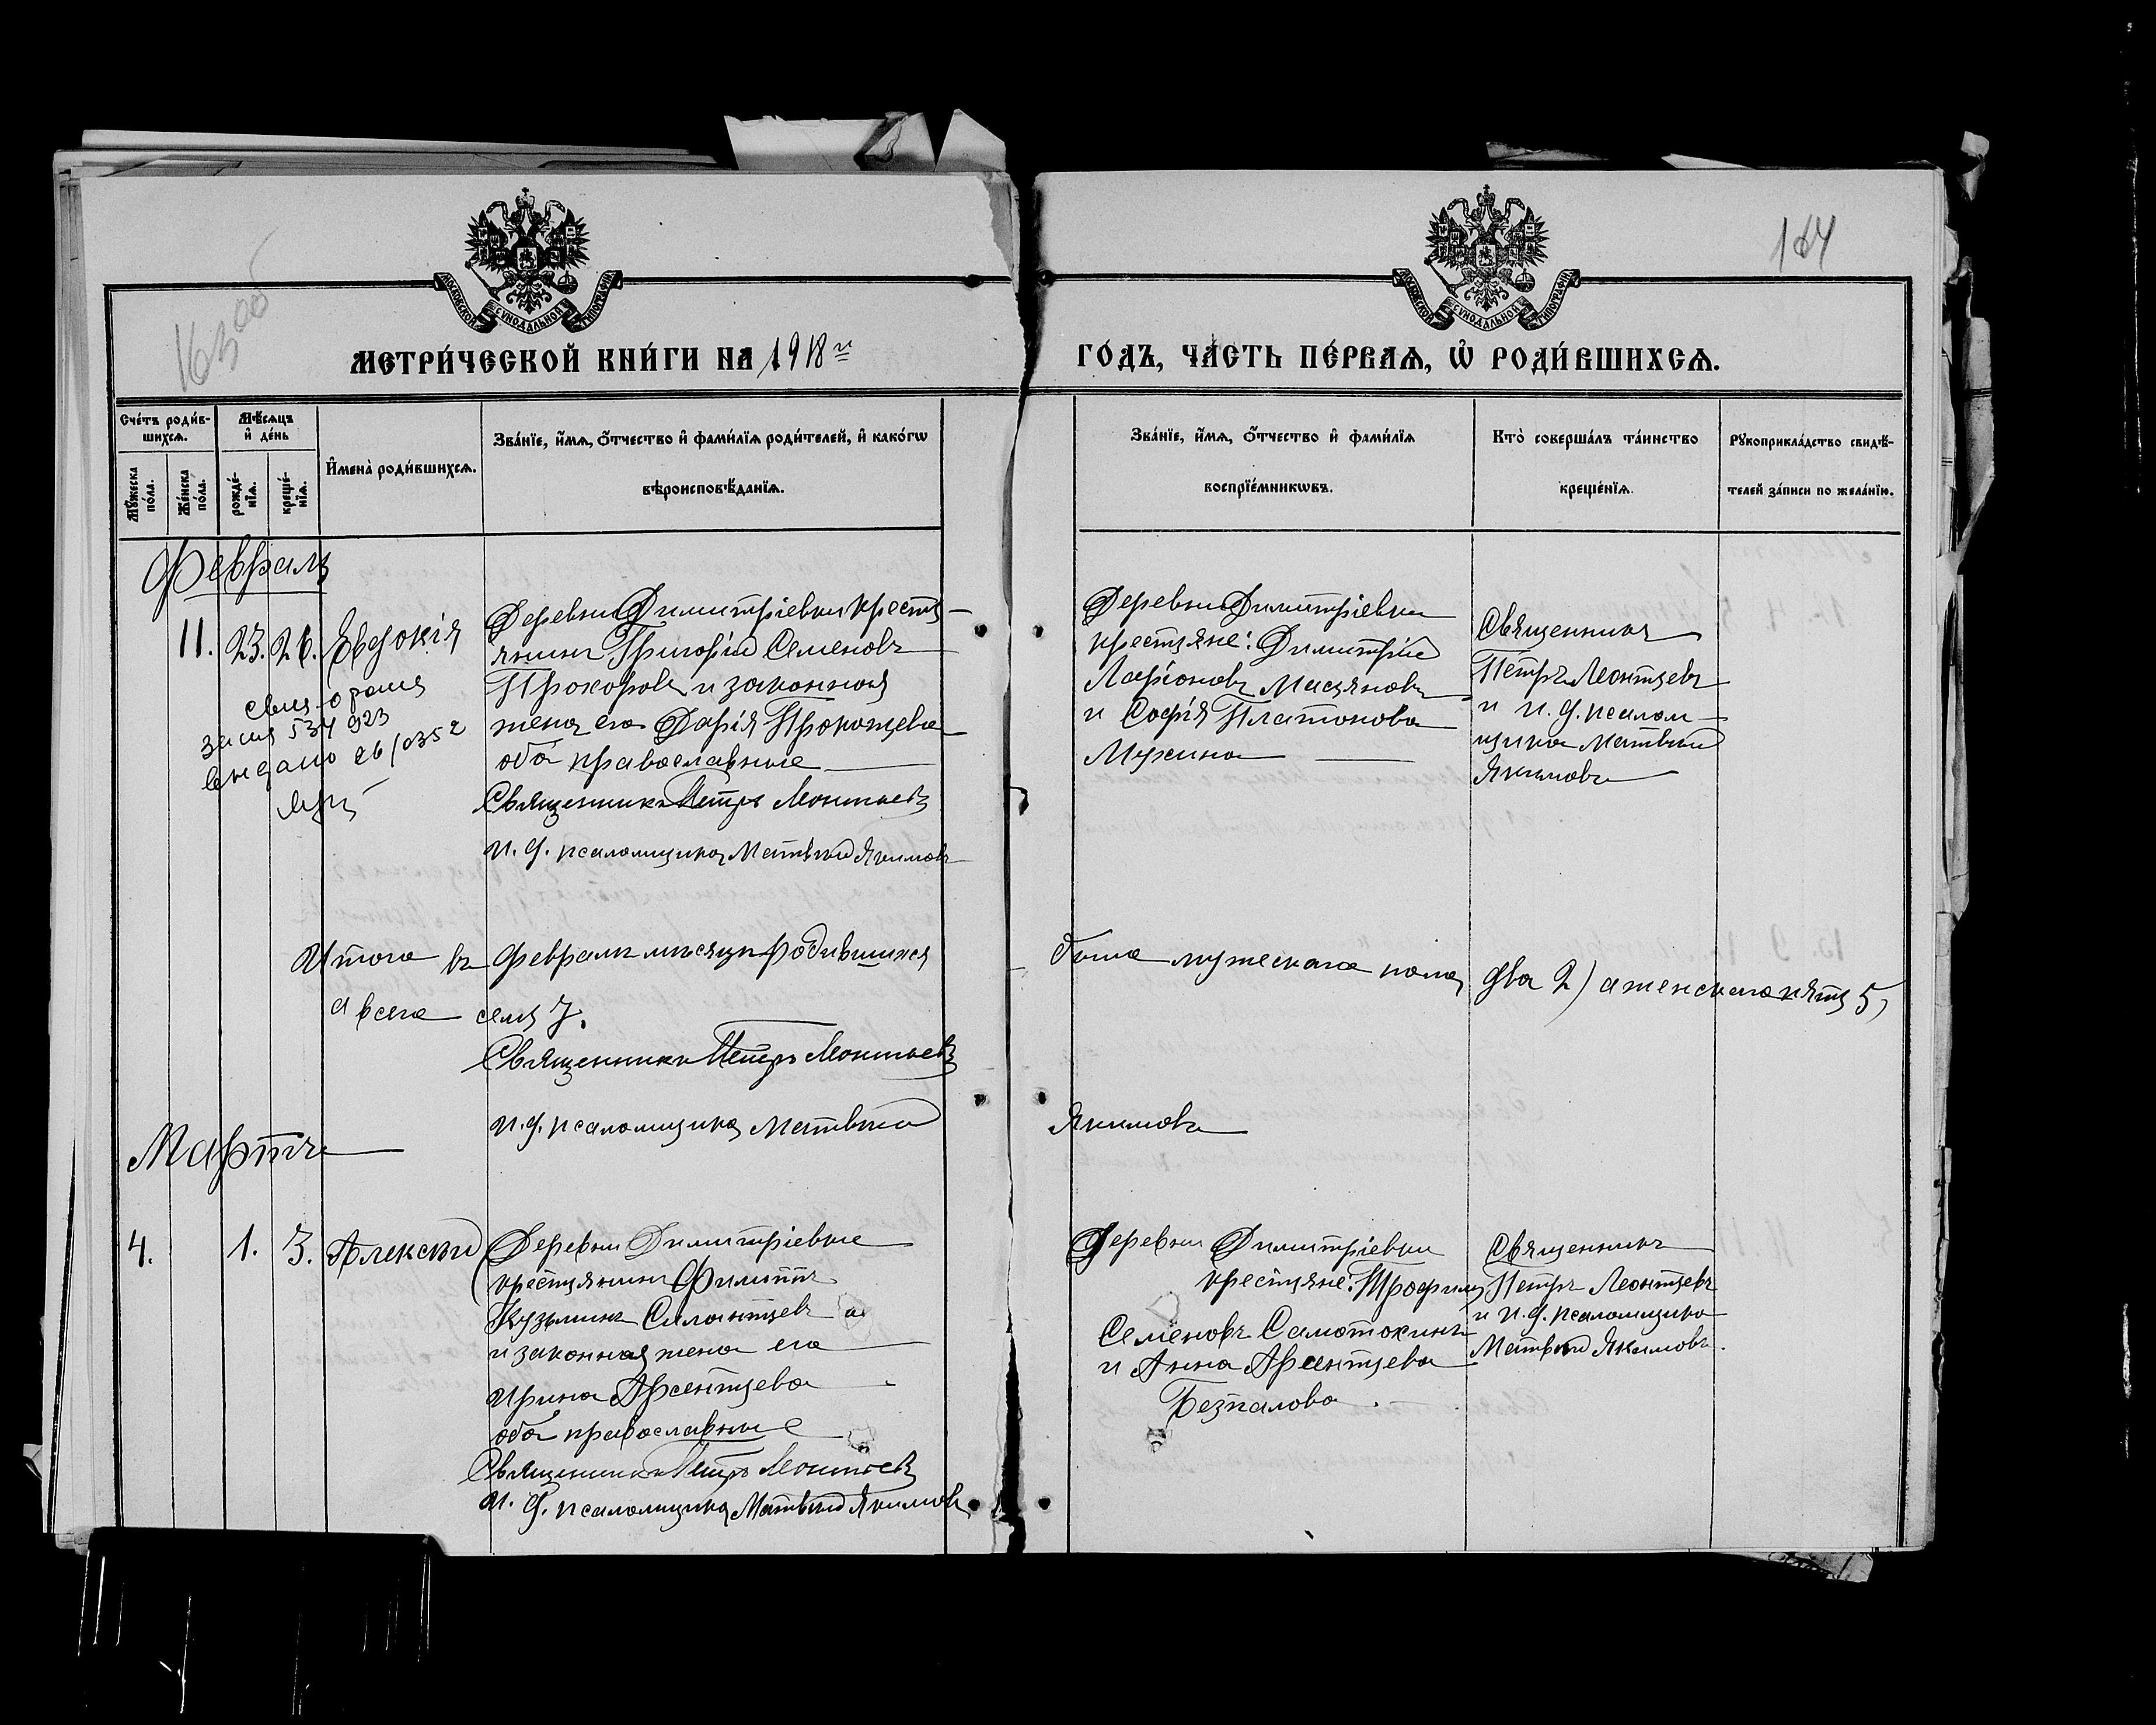 164
МОСКОВСКОЙ СѴНОДАЛЬНОЙ ТИПОГРАФІИ
МОСКОВСКОЙ СѴНОДАЛЬНОЙ ТИПОГРАФІИ
МЕТРИ́ЧЕСКОЙ КНИ́ГИ НА 1918 й
ГО́ДЪ, ЧА́СТЬ ПЕ́РВАѦ, Ѡ҆ РОДИ́ВШИХСѦ.
Сче́тъ роди́в-
шихсѧ.
Мꙋ́жеска по́ла.
Же́нска по́ла.
Мѣ́сѧцъ и҆ де́нь
рожде́-нїѧ.
креще́-нїѧ.
И҆мена̀ роди́вшихсѧ.
Зва́нїе, и҆́мѧ, ѻ҆́тчество и҆ фами́лїѧ роди́телей, и҆ како́гѡ
вѣроисповѣ́данїѧ.
Зва́нїе, и҆́мѧ, ѻ҆́тчество и҆ фами́лїѧ
воспрїе́мникѡвъ.
Кто̀ соверша́лъ та́инство
креще́нїѧ.
Рꙋкоприкла́дство свидѣ́-
телей за́писи по жела́нїю.
Февраль
11. 23. 26. Евдокія
Деревни Димитріевки кресть-
янинъ Григорій Семеновъ
Прохоровъ и законная
жена его Дарія Прокопьева
оба православные
Священникъ Петръ Леонтьевъ
и. д. псаломщика Матвѣй Якимовъ
Деревни Димитріевки
крестьяне: Димитрій
Ларіоновъ Масяновъ
и Софія Платонова
Мухина
Священникъ
Петръ Леонтьевъ
и и. д. псалом-
щика Матвѣй
Якимовъ
выдано 26/03 52
Итого въ Февралѣ мѣсяцѣ родившихся было мужескаго пола два 2) а женскаго пять 5,
а всего семь 7.
Священникъ Петръ Леонтьевъ
и. д. псаломщика Матвѣй Якимовъ
Мартъ
4. 1. 3. Алексѣй
Деревни Димитріевки
крестьянинъ Филиппъ
Кузьминъ Силантьевъ
и законная жена его
Ирина Арсентьева
оба православные
Священникъ Петръ Леонтьевъ
и. д. псаломщика Матвѣй Якимовъ
Деревни Димитріевки
крестьяне: Трофимъ
Семеновъ Самотокинъ
и Анна Арсентьева
Безпалова.
Священникъ
Петръ Леонтьевъ
и и. д. псаломщика
Матвѣй Якимовъ.